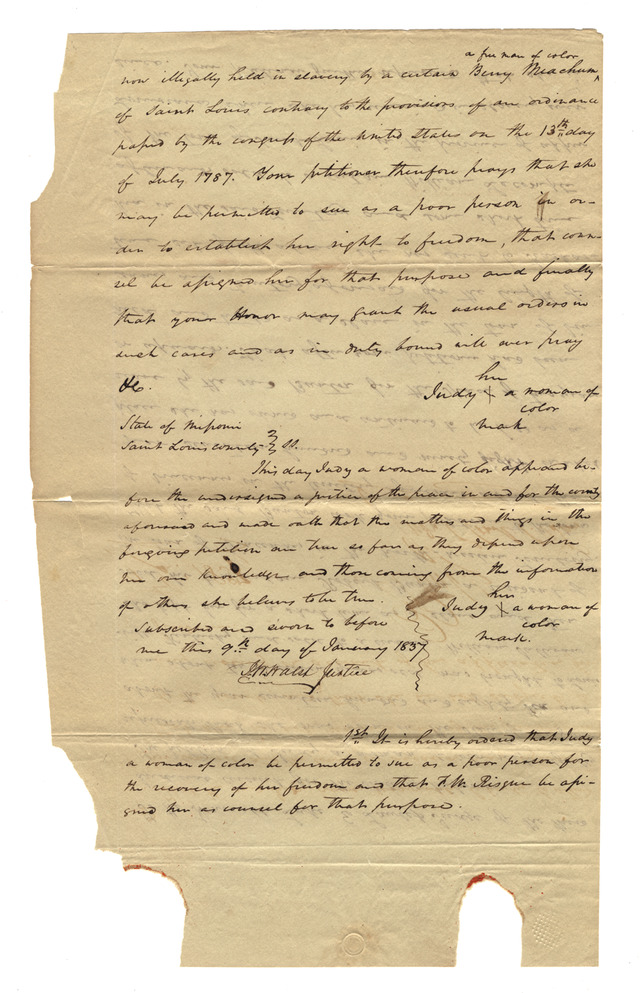 a free man of color
now illegally held in slavery by a certain Berry Meachum
of Saint Louis contrary to the provisions of an ordinance
passed by the congress of the United States on the 13th day
of July 1787. Your petitioner therefore prays that she
may be permitted to sue as a poor person in or-
der to establish her right to freedom, that coun-
sel be assigned her for that purpose and finally
that your Honor may grant the usual orders in
such cases and as in duty bound will ever pray
&c.
her
Judy X a woman of
color
mark
State of Missouri
Saint Louis county } ss.
This day Judy a woman of color appeared be-
fore the undersigned a justice of the peace in and for the county
aforesaid and made oath that the matters and things in the
forgoing petition are true so far as they depend upon
her own knowledge, and those coming from the information
of others she believes to be true.
her
Judy X a woman of
color
mark.
Subscribed and sworn to before
me this 9th day of January 1837
Walsh Justice
1st It is hereby ordered that Judy
a woman of color be permitted to sue as a poor person for
the recovery of her freedom and that F. W. Risque be assi-
gned her as counsel for that purpose.